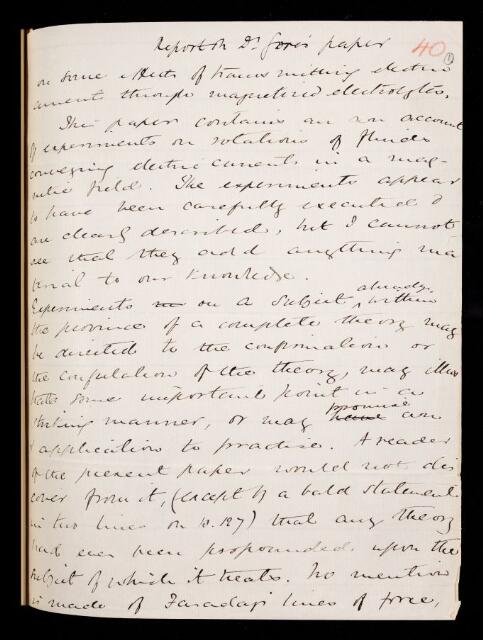 Report on Dr Gore's paper
40
1
on some effects of transmitting electric
current through magnetised electrolytes.
This paper contains an account
of experiments on rotations of fluids
conveying electric currents in a mag-
netic field. The experiments appear
to have been carefully executed &
are clearly described, but I cannot
see that they add anything ma
terial to our knowledge.
Experiments on a subject already within
the province of a complete theory may
be directed to the confirmation or
the confutation of the theory, may illus
trate some important point in a
striking manner, or may promise
application to practise. A reader
of the present paper would not dis
cover from it, (except by a bald statement
in two lines on p. 127) that any theory
had ever been propounded upon the
subject of which it treats. No mention
is made of Faraday's lines of force,